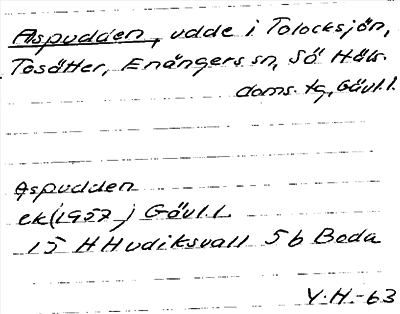 Aspudden, udde i Tolocksjön,
Tosätter, Enångers sn, Sö Häls.
doms. tg, Gävl.l.
Aspudden
ek(1957-) Gävl.l.
15 H Hudiksvall 5b Boda
Y.H.-63